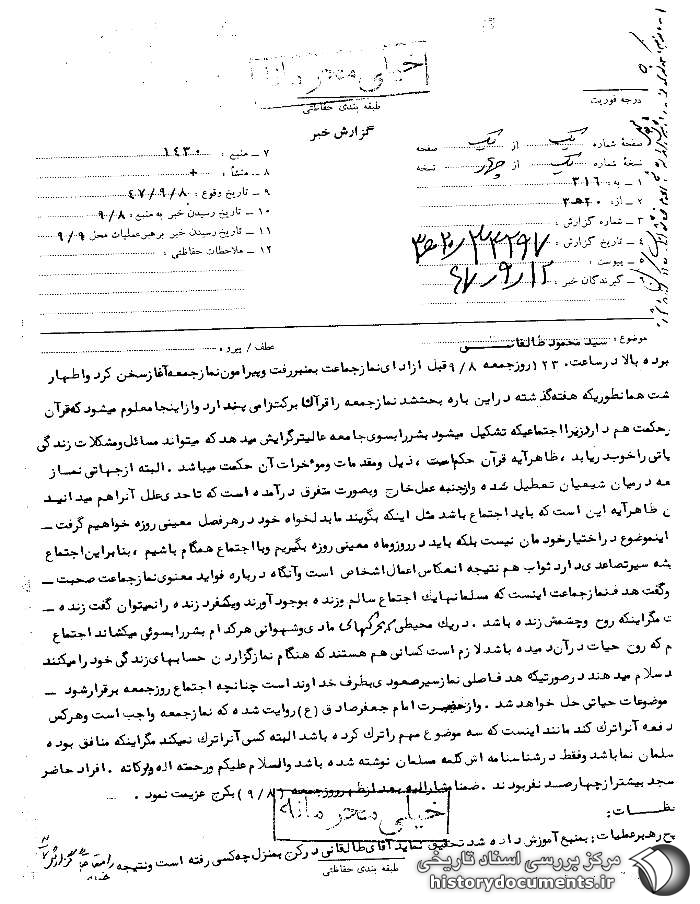 خیلی محرمانه
طبقه بندی حفاظتی
درجه فوریت
گزارش خبر
صفحهٔ شماره یک از یک صفحه
نسخهٔ شماره یک از چهار نسخه
۱ ـ به: ۳۱۶
۲ ـ از: ۲۰ ه‍ ۳
۳ ـ شماره گزارش:
۴ ـ تاریخ گزارش:
۵ ـ پیوست:
۶ ـ گیرندگان خبر:
۴۷/۹/۱۲
۷ ـ منبع: ۱۴۳۰
۸ ـ منشأ: +
۹ ـ تاریخ وقوع: ۴۷/۹/۸
۱۰ ـ تاریخ رسیدن خبر به منبع: ۹/۸
۱۱ ـ تاریخ رسیدن خبر برهبر عملیات محل ۹/۹
۱۲ ـ ملاحظات حفاظتی:
موضوع: سید محمود طالقانی
عطف / پیرو:
برده بالا در ساعت ۱۲۳۰ روز جمعه ۹/۸ قبل از ادای نماز جماعت بمنبر رفت و پیرامون نماز جمعه آغاز سخن کرد و اظهار
شت همانطوریکه هفته گذشته در این باره بحث شد نماز جمعه را قرآن با برکت الزامی پندارد و از اینجا معلوم میشود که قرآن
رحکمت هم دارد زیرا اجتماعیکه تشکیل میشود بشر را بسوی جامعه عالیتر گرایش میدهد که میتواند مسائل و مشکلات زندگی
یاتی را خوب دریابد ، ظاهر آیه قرآن حکم است ، ذیل و مقدمات و موخرات آن حکمت میباشد . البته از جهاتی نماز
معه در میان شیعیان تعطیل شده و از جنبه عمل خارج و بصورت متفرق درآمده است که تا حدی علل آنرا هم میدانید
ن ظاهر آیه این است که باید اجتماع باشد مثل اینکه بگویند ما بدلخواه خود در هر فصل معینی روزه خواهیم گرفت ـ
اینموضوع در اختیار خودمان نیست بلکه باید در روز و ماه معینی روزه بگیریم و با اجتماع همگام باشیم ، بنابراین اجتماع
یشه سیر تصاعدی دارد ثواب هم نتیجه انعکاس اعمال اشخاص است وآنگاه درباره فواید معنوی نماز جماعت صحبت ـ
وگفت هدف نماز جماعت اینست که مسلمانها یک اجتماع سالم و زنده بوجود آورند ویکنفر زنده را نمیتوان گفت زنده ـ
ت مگر اینکه روح و چشمش زنده باشد . در یک محیطی که محرکهای مادی و شهوانی هرکدام بشر را بسوئی میکشاند اجتماع
م که روح حیات در آن دمیده باشد لازم است کسانی هم هستند که هنگام نماز گزاردن حسابهای زندگی خود را میکنند
د سلام میدهند در صورتیکه هدف اصلی نماز سیر صعودی بطرف خداوند است چنانچه اجتماع روز جمعه برقرار شود ـ
موضوعات حیاتی حل خواهد شد . واز حضرت امام جعفر صادق (ع) روایت شده که نماز جمعه واجب است وهرکس
دفعه آنرا ترک کند مانند اینست که سه موضوع مهم را ترک کرده باشد البته کسی آنرا ترک نمیکند مگر اینکه منافق بوده
سلمان نما باشد وفقط در شناسنامه اش کلمه مسلمان نوشته شده باشد والسلام علیکم ورحمته اله وبرکاته . افراد حاضر
سجد بیشتر از چهارصد نفر بودند . ضمنا مشارالیه بعد از ظهر روز جمعه (۹/۸) بکرج عزیمت نمود .
نظریات :
یح رهبر عملیات : بمنبع آموزش داده شد تحقیق نماید آقای طالقانی در کرج بمنزل چه کسی رفته است ونتیجه را
خیلی محرمانه
طبقه بندی حفاظتی
مرکز بررسی اسناد تاریخی
historydocuments.ir